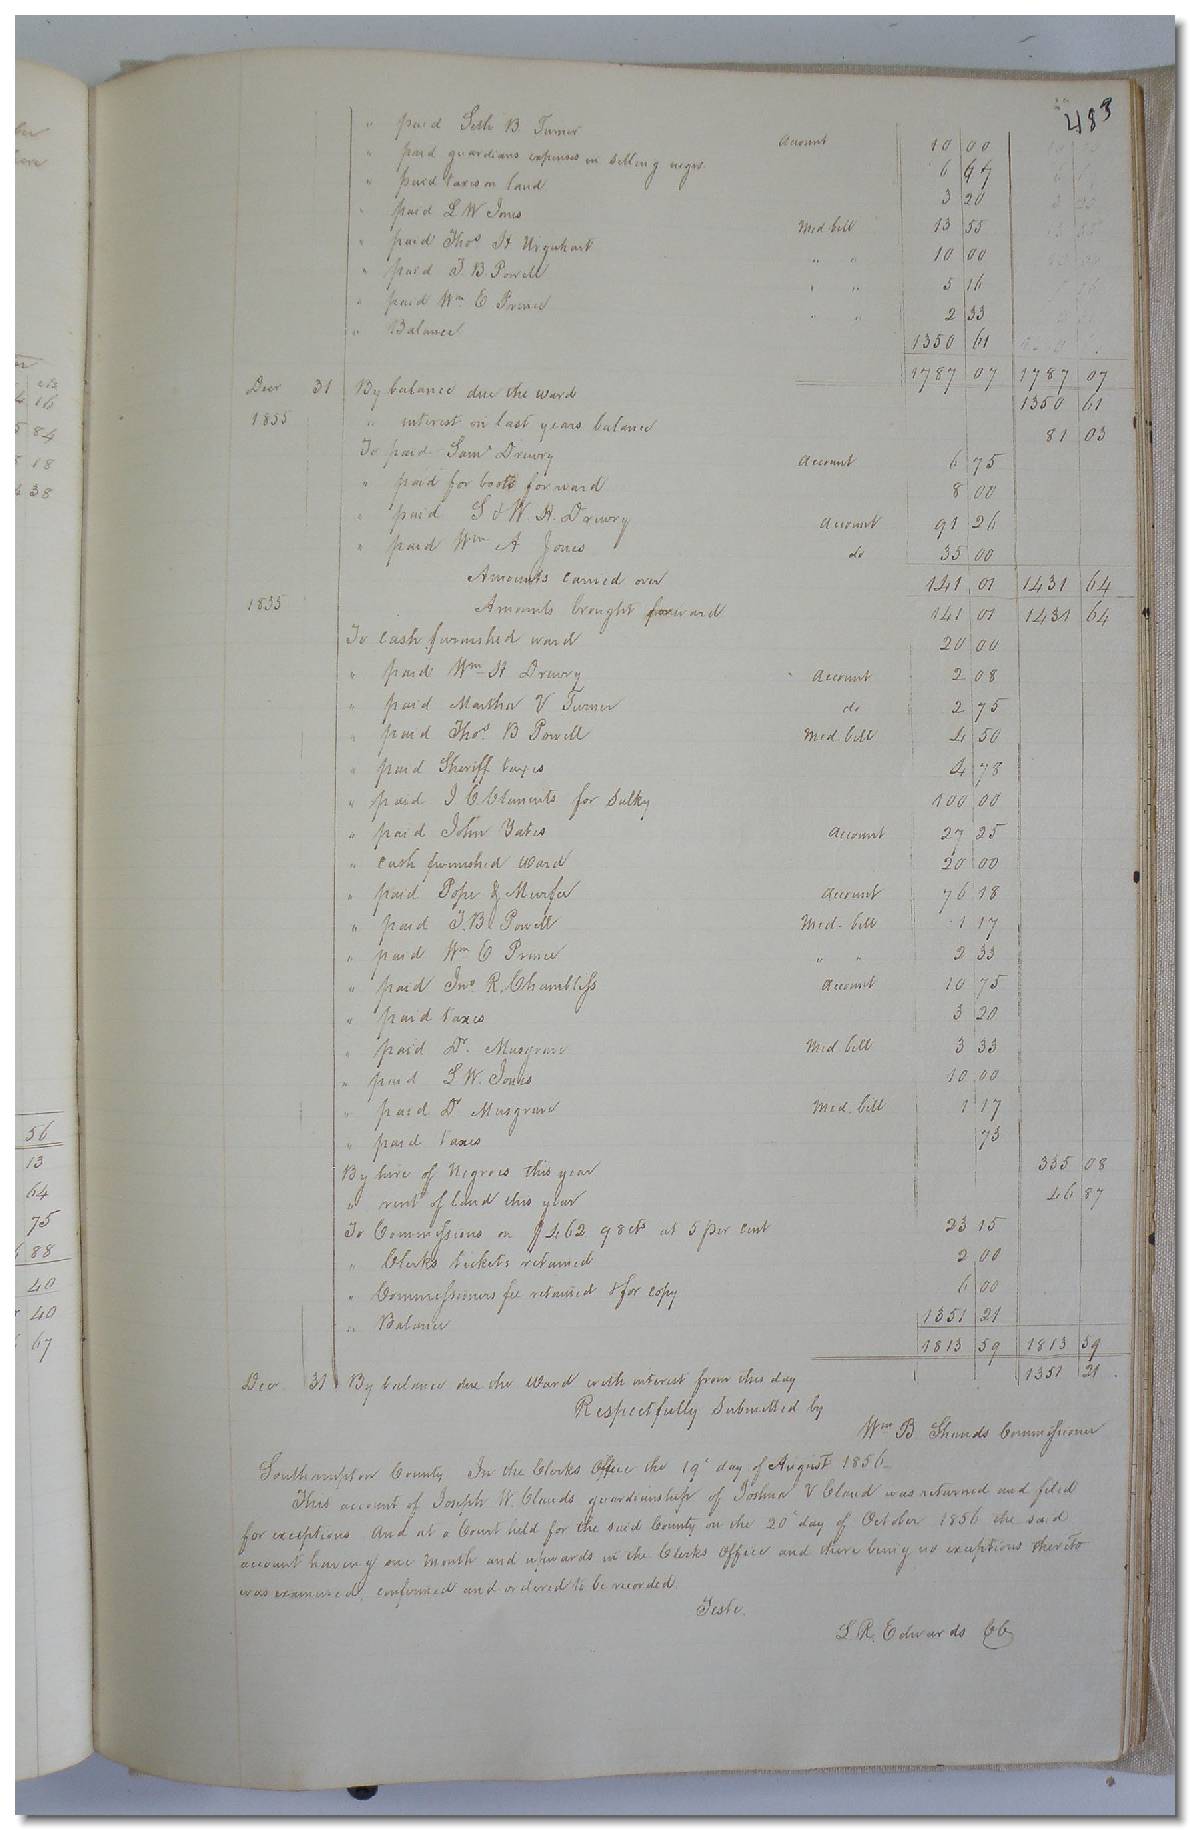 483
" paid Seth B. Turner Account 10 00
" paid guardians expenses in selling negro 6 47
" paid taxes on land 3 20
" paid L W Jones Med bill 13 55
" paid Thos H Urquhart " " 10 00
" paid T. B. Powell " " 5 16
" paid Wm E Prince " " 2 33
" Balance 1350 61
1787 07 1787 07
Decr 31 By balance due the ward 1350 61
1855 " interest on last years balance 81 03
To paid Saml Drewry Account 6 75
" paid for boots for ward 8 00
" paid S & W. H. Drewry Account 91 26
" paid Wm A Jones do 35 00
Amounts carried over 141 01 1431 64
1855 Amounts brought forward 141 01 1431 64
To cash furnished ward 20 00
" paid Wm H Drewry Account 2 08
" paid Martha V Turner do 2 75
" paid Thos B Powell Med. bill 4 50
" paid Sheriff taxes 4 78
" paid J C Clements for Sulky 100 00
" paid John Yates Account 27 25
" cash furnished ward 20 00
" paid Pope & Murfee Account 76 18
" paid T. B. Powell Med. bill 1 17
" paid Wm E Prince " " 2 33
" paid Jno R. Chambliss Account 10 75
" paid taxes 3 20
" paid Dr. Musgrave Med bill 3 33
" paid L W. Jones 10 00
" paid Dr Musgrave Med. bill 1 17
" paid taxes 73
By hire of Negroes this year 335 08
" rent of land this year 46 87
To Commissions on $462 98cts at 5 per cent 23 15
" Clerks tickets returned 2 00
" Commissioners fee returned & for copy 6 00
" Balance 1351 21
1813 59 1813 59
Dec 31 By balance due the Ward with interest from this day 1351 21
Respectfully Submitted by
Wm B Shands Commissioner
Southampton County In the Clerks Office the 19th day of August 1856
This account of Joseph W. Clauds guardianship of Joshua V Claud was returned and filed
for exceptions And at a Court held for the said County on the 20th day of October 1856 the said
account having one month and upwards in the Clerks Office and there being no exceptions thereto
was examined, confirmed and ordered to be recorded.
Teste.
L. R. Edwards CC
56
13
64
75
88
40
40
67